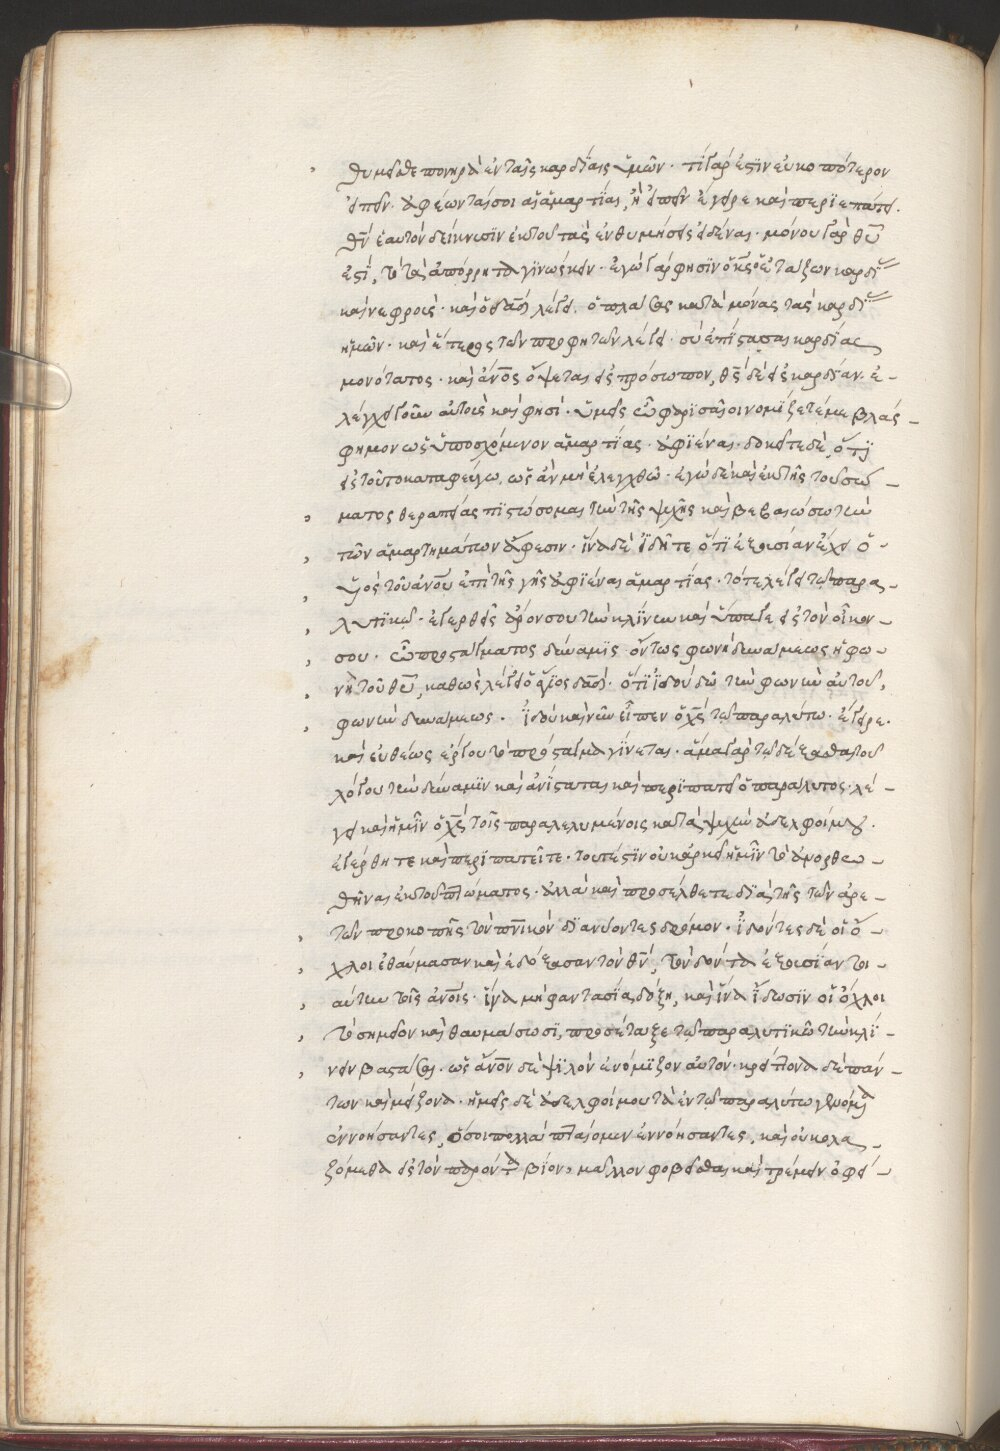 θυμεῖσθε πονηρὰ ἐν ταῖς καρδίαις ὑμῶν· τί γάρ ἐστιν εὐκοπώτερον
εἰπεῖν· ἀφέωνταί σοι αἱ ἁμαρτίαι, ἢ εἰπεῖν ἔγειρε καὶ περιεπάτει·
θν̄ ἑαυτὸν δείκνυσιν ἐκ τοῦ τὰς ἐνθυμήσεις εἰδέναι· μόνου γὰρ θῡ
ἐστί, τὸ τὰ ἀπόρρητα γινώσκειν· ἐγὼ γάρ φησιν ὁ κς̄ ὁ ἐτάζων καρδί
καὶ νεφρούς· καὶ ὁ δᾱδ λέγει· ὁ πλάσας κατὰ μόνας τὰς καρδί
ἡμῶν· καὶ ἕτερος τῶν προφητῶν λέγει· σὺ ἐπίστασαι καρδίας
μονότατος· καὶ ἄνο̄ς ὄψεται εἰς πρόσωπον, θς̄ δὲ εἰς καρδίαν· ἐ-
λέγχει γοῦν αὐτοὺς καί φησι· ὑμεῖς ὦ φαρισαῖοι νομίζετέ με βλάς-
φημον ὡς ὑποσχόμενον ἁμαρτίας ἀφιέναι· δοκεῖτε δὲ, ὅτι
εἰς τοῦτο καταφεύγω, ὡς ἂν μὴ ἐλεγχθῶ· ἐγὼ δὲ καὶ ἐκ τῆς τοῦ σώ-
ματος θεραπείας πιστώσομαι τὴν τῆς ψυχῆς καὶ βεβαιώσω τὴν
τῶν ἁμαρτημάτων ἄφεσιν· ἵνα δὲ ἴδητε ὅτι ἐξουσίαν ἔχει ὁ
υἱὸς τοῦ ἀνο̄υ ἐπὶ τῆς γῆς ἀφιέναι ἁμαρτίας· τότε λέγει τῷ παρα-
λυτικῷ· ἐγερθεὶς ἆρόν σου τὴν κλίνην καὶ ὕπαγε εἰς τὸν οἶκον
σου· ὢ προστάγματος δύναμις· ὄντως φωνὴ δυνάμεως ἡ φω-
νὴ τοῦ θῡ, καθὼς λέγει ὁ ἅγιος δᾱδ· ὅτι ἰδοὺ δῷ τὴν φωνὴν αὐτοῦ,
φωνὴν δυνάμεως· ἰδοὺ καὶ νῦν εἶπεν ὁ χς̄ τῷ παραλύτω· ἔγειρε·
καὶ εὐθέως ἔργον τὸ πρόσταγμα γίνεται· ἅμα γὰρ τῷ δέξασθαι τοῦ
λόγου τὴν δύναμιν καὶ ἀνίσταται καὶ περιπατεῖ ὁ παράλυτος· λέ-
γει καὶ ἡμῖν ὁ χς̄ τοῖς παραλελυμένοις κατὰ ψυχὴν ἀδελφοί μου·
ἐγέρθητε καὶ περιπατεῖτε· τουτέστιν οὐκ ἀρκεῖ ἡμῖν τὸ ἀνορθω-
θῆναι ἐκ τοῦ πτώματος· ἀλλὰ καὶ προσέλθετε διὰ τῆς τῶν ἀρε-
τῶν προκοπῆς τὸν πν̄ικὸν διανύοντες δρόμον· ἰδόντες δὲ οἱ ὄ-
χλοι ἐθαύμασαν καὶ ἐδόξασαν τὸν θν̄, τὸν δόντα ἐξουσίαν τοι-
αύτην τοῖς ἀνο̄ις· ἵνα μὴ φαντασία δόξη, καὶ ἵνα ἴδωσιν οἱ ὄχλοι
τὸ σημεῖον καὶ θαυμάσωσι, προσέταξε τῷ παραλυτικῷ τὴν κλί-
νην βαστάσαι· ὡς ἄνο̄ν δὲ ψιλὸν ἐνόμιζον αὐτόν· κρείττονα δὲ πάν-
των καὶ μείζονα· ἡμεῖς δὲ ἀδελφοί μου τὰ ἐν τῷ παραλύτω γενόμενα
ἐννοήσαντες, ὅσοι πολλὰ πταίομεν ἐννοήσαντες, καὶ οὐ κολα-
ζόμεθα εἰς τὸν παρόντα βίον, μᾶλλον φοβεῖσθαι καὶ τρέμειν ὀφεί-